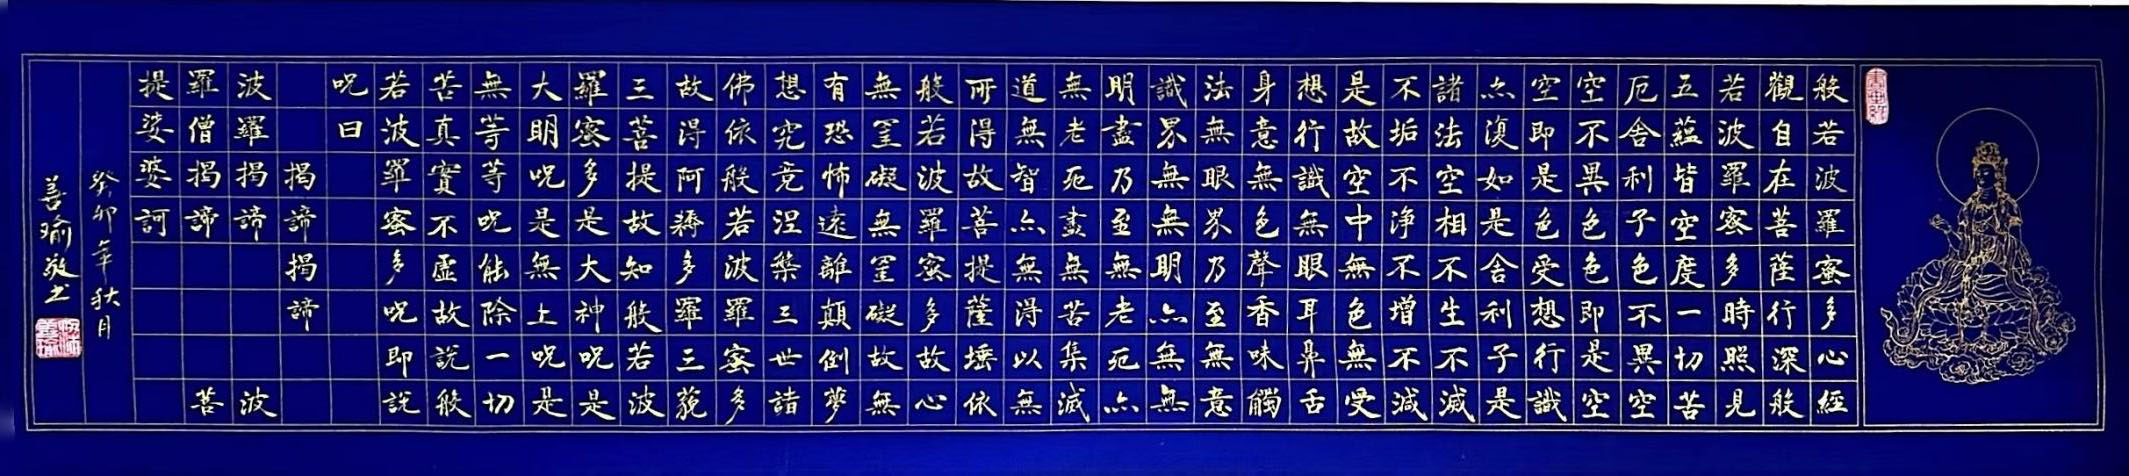 般若波羅蜜多心經
觀自在菩薩行深般
若波羅蜜多時照見
五蘊皆空度一切苦
厄舍利子色不異空
空不異色色即是空
空即是色受想行識
亦復如是舍利子是
諸法空相不生不滅
不垢不净不增不減
是故空中無色無受
想行識無眼耳鼻舌
身意無色聲香味觸
法無眼界乃至無意
識界無無明亦無無
明盡乃至無老死亦
無老死盡無苦集滅
道無智亦無得以無
所得故菩提薩埵依
般若波羅蜜多故心
無罣礙無罣礙故無
有恐怖遠離顛倒夢
想究竟涅槃三世諸
佛依般若波羅蜜多
故得阿耨多羅三藐
三菩提故知般若波
羅蜜多是大神呪是
大明呪是無上呪是
無等等呪能除一切
苦真實不虛故說般
若波羅蜜多呪即說
呪曰
揭諦揭諦
波羅揭諦 波
羅僧揭諦 菩
提娑婆訶
癸卯年秋月
善瑜敬书